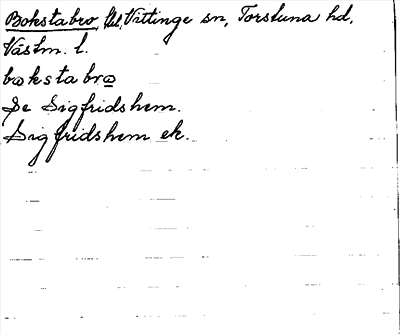 Bokstabro, Vittinge sn, Torstuna hd,
Västm. l.
bωkstabrω
Se Sigfridshem.
Sigfridshem ek.